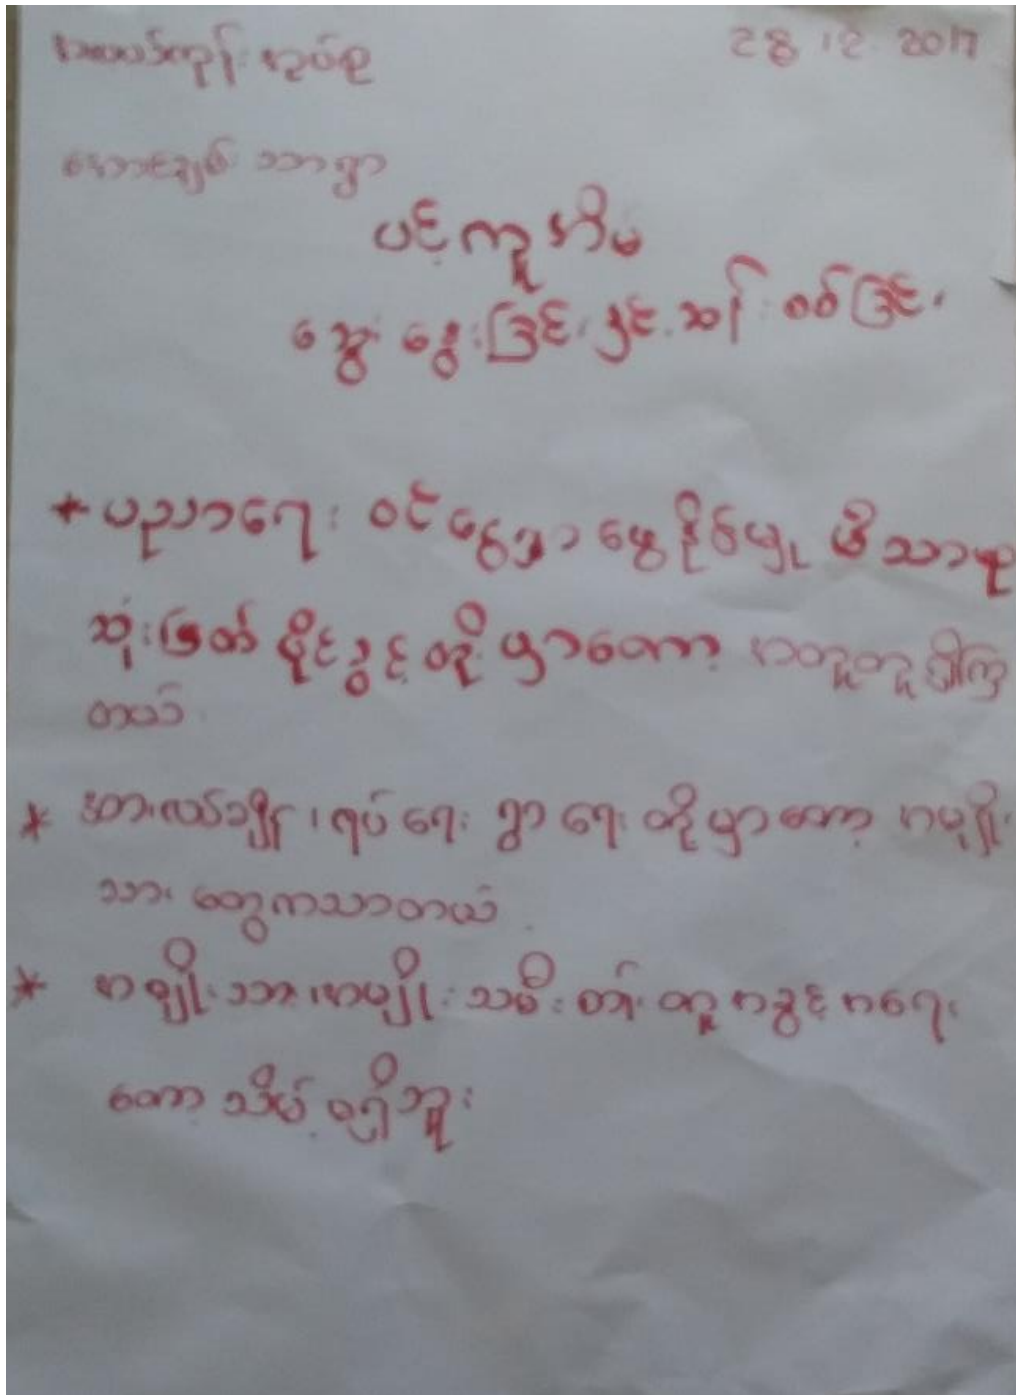 အလယ်ကုန်း အုပ်စု 28 12 2017
အောင်ချမ်းသာရွာ
ပင့်ကူအိမ်
ဆွေးနွေးခြင်း နှင့် ဆန်းစစ်ခြင်း
* ပညာရေး ဝင်ငွေရှာဖွေနိုင်မှု မိသားစု
ဆုံးဖြတ်ပိုင်ခွင့်တို့မှာတော့ အတူတူရှိကြ
တယ်
* အားလပ်ချိန်၊ ရပ်ရေးရွာရေးတို့မှာတော့ အမျိုး
သားတွေကသာတယ်
* အမျိုးသား၊ အမျိုးသမီး တန်းတူအခွင့်အရေး
တော့သိပ်မရှိဘူး